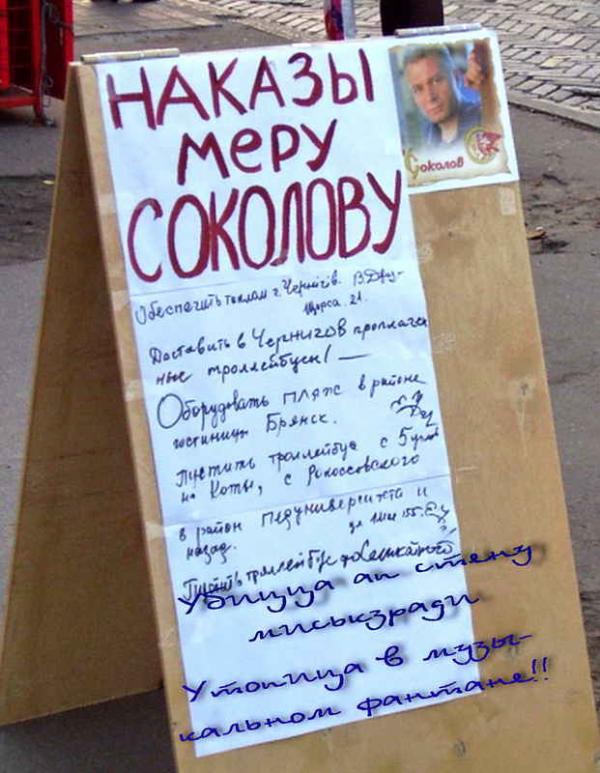 НАКАЗЫ
МЕРУ
СОКОЛОВУ
Соколов
Обеспечить теплом г. Чернігів.
Щорса. 21.
Доставить в Чернигов проплачен
ные троллейбусы! —
Оборудовать пляж в районе
гостиницы Брянск.
Пустить троллейбус с 5 углов
на Коты, с Рокоссовского
в район Педуниверситета и
назад.
Пустить троллейбус до
Убицца ап стену
миськзради
Утопицца в музы-
кальном фантане!!